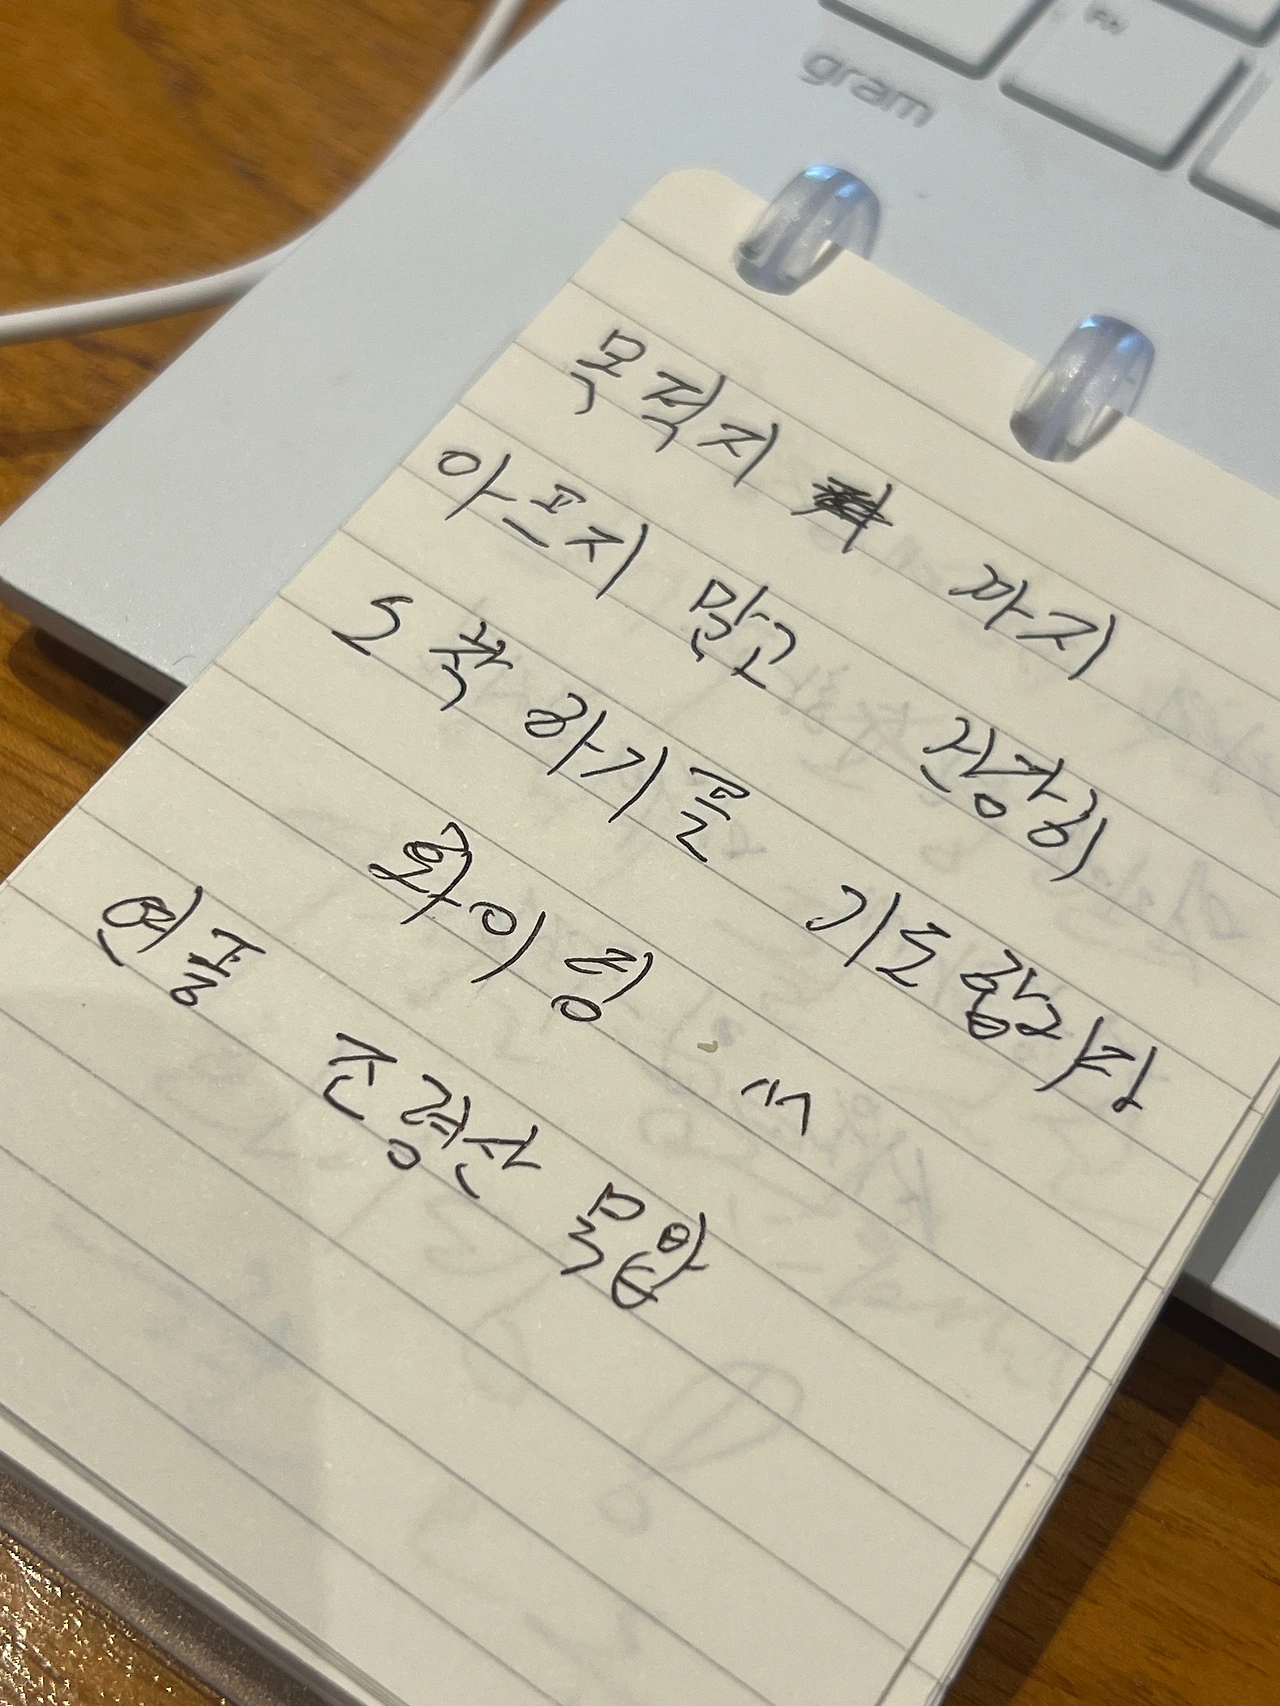 Fn
gram
목적지 까지
아프지 말고 건강히
도착 하기를 기도합니다
화이팅 ^^
조령산 묵암